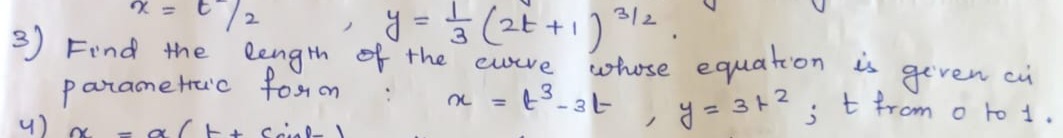 x = t²/2 , y = 1/3 (2t+1)^3/2 .
3) Find the length of the curve whose equation is given in
parametric form : x = t³-3t , y = 3t² ; t from 0 to 1.
4) x = a(t + sint)